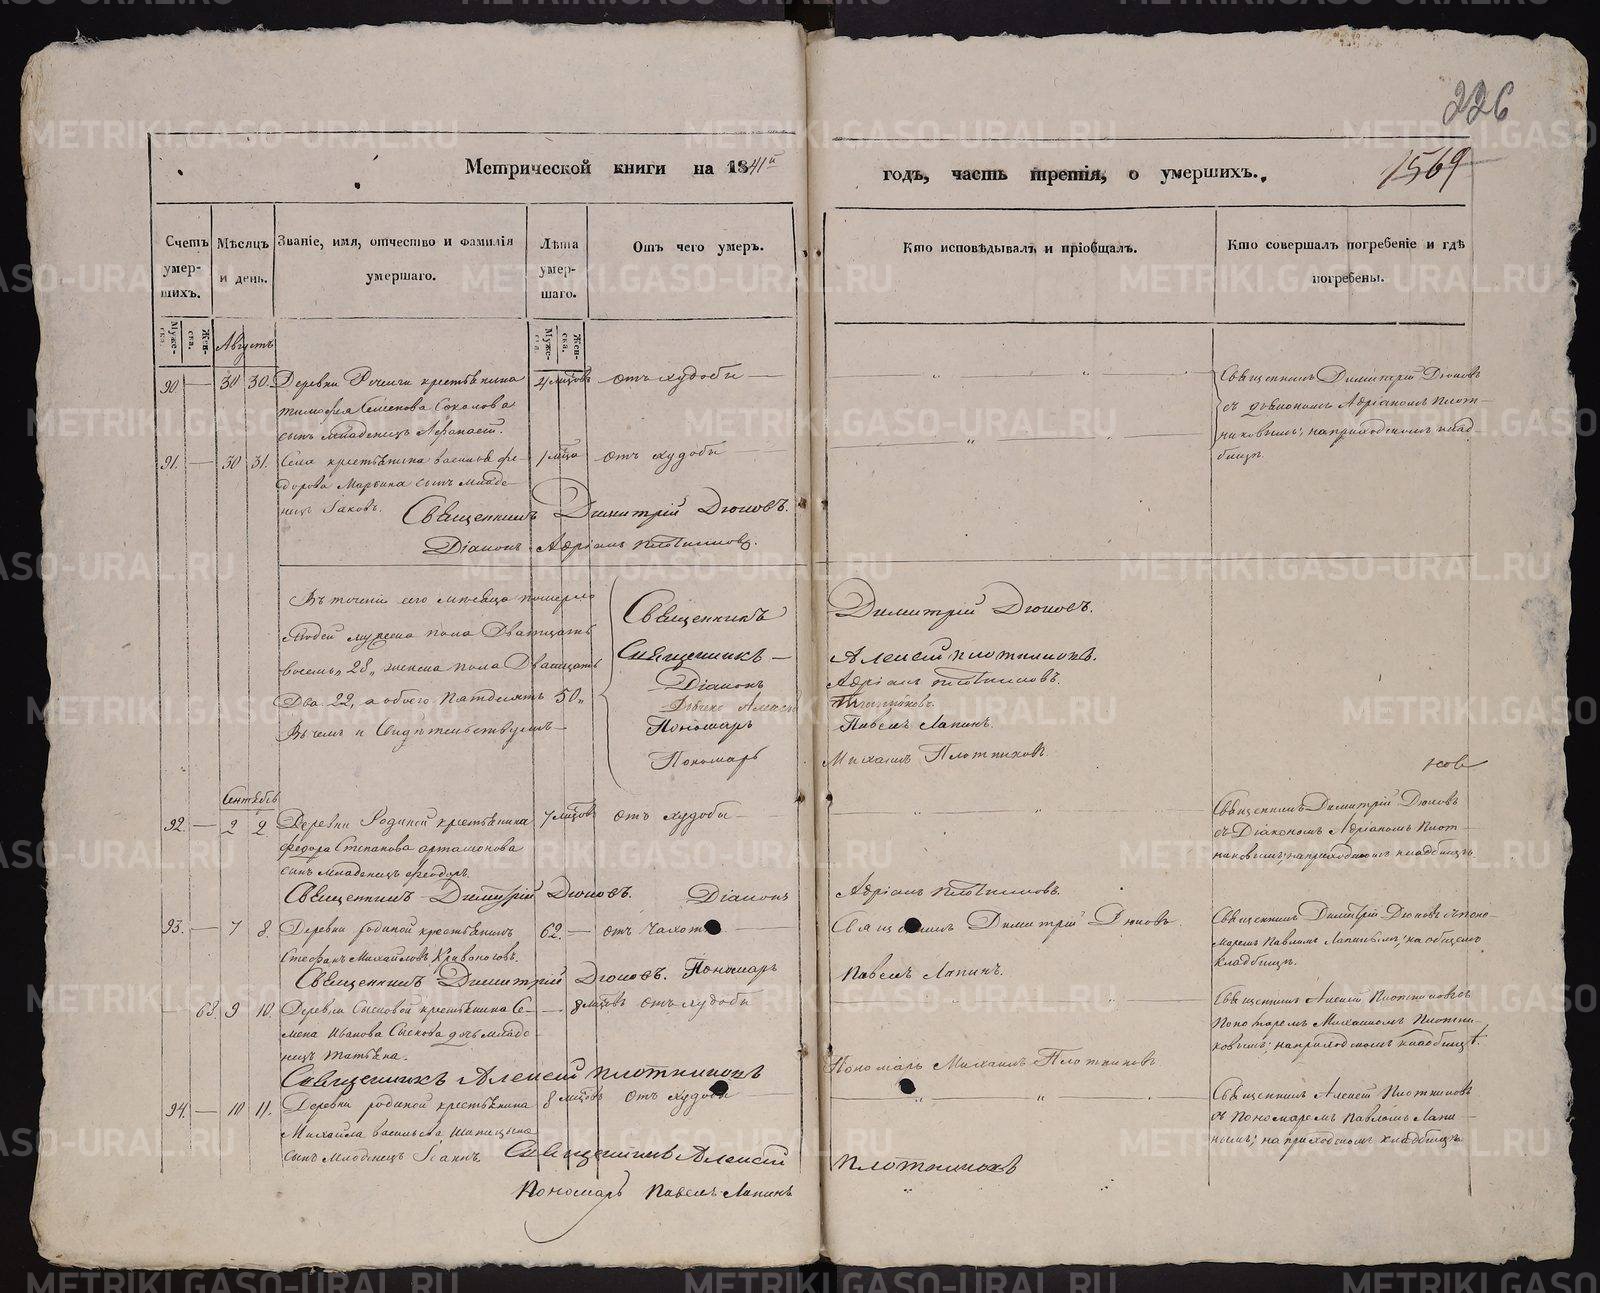 226
1569
Метрической книги на 1841й годъ, часть третія, о умершихъ.
Счетъ умер-шихъ.
Мѣсяцъ и день.
Званіе, имя, отчество и фамилія умершаго.
Лѣта умер-шаго.
Отъ чего умеръ.
Кто исповѣдывалъ и пріобщалъ.
Кто совершалъ погребеніе и гдѣ погребены.
Муже-ска.
Жен-ска.
Муже-ска.
Жен-ска.
Августъ
90. — 30 30. Деревни крестьянина
тимофея Семенова Соколова
сынъ младенецъ Афанасій.
4 мѣцовъ
отъ худобы —
Священникъ Димитрій Дюковъ
съ діакономъ Адріаномъ Плот-
никовымъ; на приходскомъ клад
бищѣ.
91. — 30 31. Села крестьянина василья фе-
дорова сынъ младе-
нецъ Іаковъ.
1 мѣца
отъ худобы
Священникъ Димитрій Дюковъ.
Діаконъ Адріанъ Плотниковъ.
Въ теченіи сего мѣсяца померло
людей мужеска пола Двадцать
восемь, 28, женска пола Двадцать
Два 22, а обоего Пятдесятъ 50,
В чемъ и Свидѣтельствуемъ —
Священникъ Димитрій Дюковъ.
Священникъ — Алексей плотниковъ.
Діаконъ Адріанъ Плотниковъ.
Алексей Плотниковъ.
Пономарь Павелъ Лапинъ.
Пономарь Михаилъ Плотниковъ
Сентябрь
92. — 2 2 Деревни Родиной крестьянина
федора Степанова артамонова
сынъ младенецъ феодоръ.
7 мѣцовъ
отъ худобы
Священникъ Димитрій Дюковъ
съ Діакономъ Адріаномъ Плот-
никовымъ; на приходскомъ кладбищѣ.
Священникъ Димитрій Дюковъ. Діаконъ Адріанъ Плотниковъ.
93. — 7 8. Деревни родиной крестьянинъ
Стефанъ Михайловъ Кривоноговъ.
62. —
отъ Чахотки
Священникъ Димитрій Дюковъ
Священникъ Димитрій Дюковъ съ поно-
маремъ Павломъ Лапинымъ; на общемъ
кладбищѣ.
Священникъ Димитрій Дюковъ. Пономарь Павелъ Лапинъ.
— 63. 9 10. Деревни Сысковой крестьянина Се-
мена Иванова Сыскова дочь младе-
нецъ Татьяна.
8 мѣцовъ
отъ худобы
Священникъ Алексей Плотниковъ съ
Пономаремъ Михаиломъ Плотни-
ковымъ; на приходскомъ кладбищѣ.
Священникъ Алексей плотниковъ
Пономарь Михаилъ Плотниковъ
94. — 10 11. Деревни родиной крестьянина
Михайла васильева
сынъ младенецъ Іоаннъ.
8 мѣцовъ
отъ худобы
Священникъ Алексей Плотниковъ
съ Пономаремъ Павломъ Лапи-
нымъ; на приходскомъ кладбищѣ
Священникъ Алексей плотниковъ
Пономарь Павелъ Лапинъ
METRIKI.GASO-URAL.RU